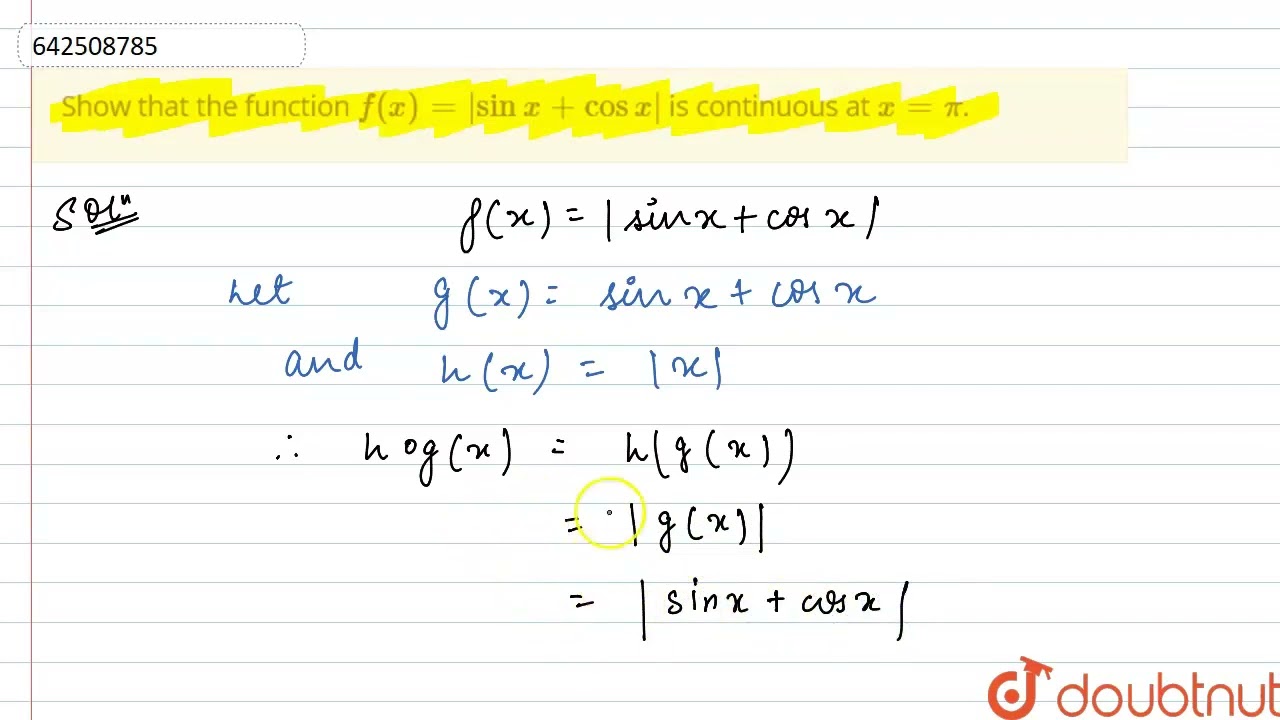 642508785
Show that the function f(x) = |sin x + cos x| is continuous at x = π.
Solⁿ f(x) = |sinx + cos x|
Let g(x) = sin x + cos x
and h(x) = |x|
∴ hog(x) = h(g(x))
= |g(x)|
= |sinx + cosx|
doubtnut